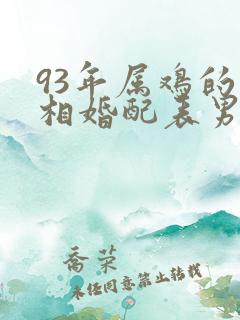 93年属鸡的
相婚配表男
乔荣
未经同意禁止转载